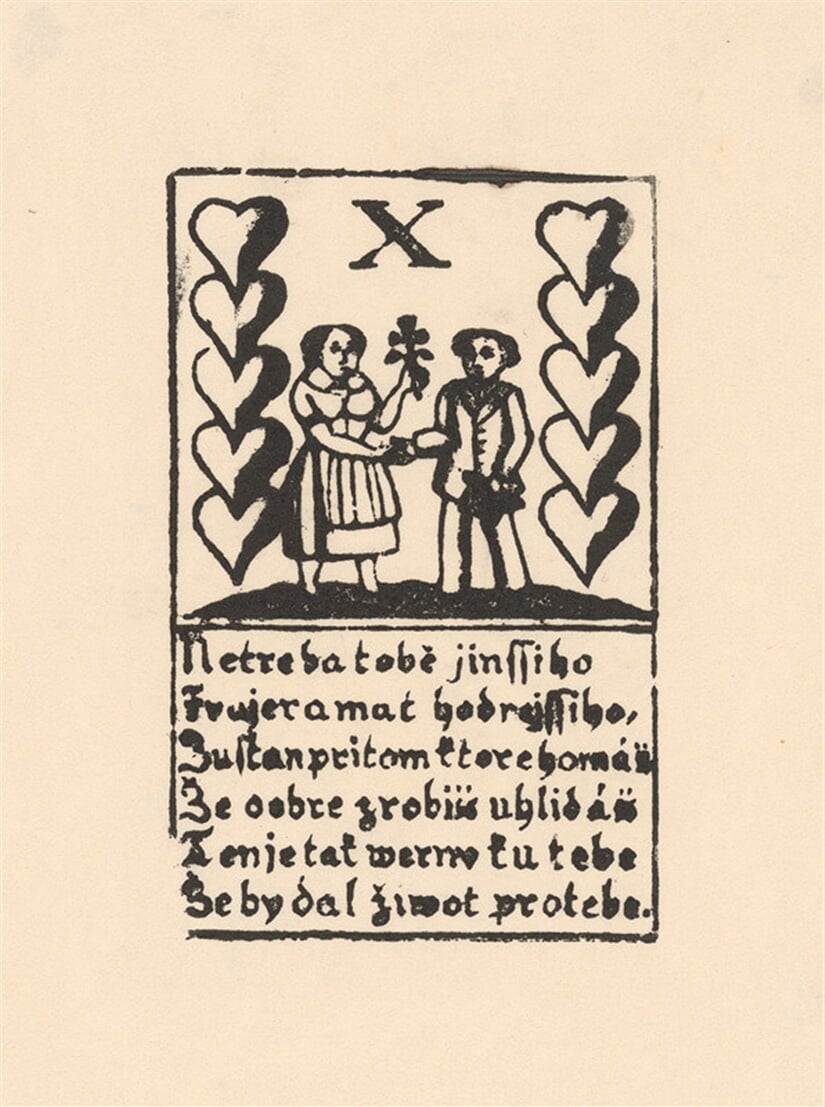 X
Netreba tobě jinssiho
hodrejssiho,
Zustan pritom ktoreho máš
Že dobre zrobiš uhlidáš
Ten je tak werny ku tebe
Žeby dal život pro tebe.